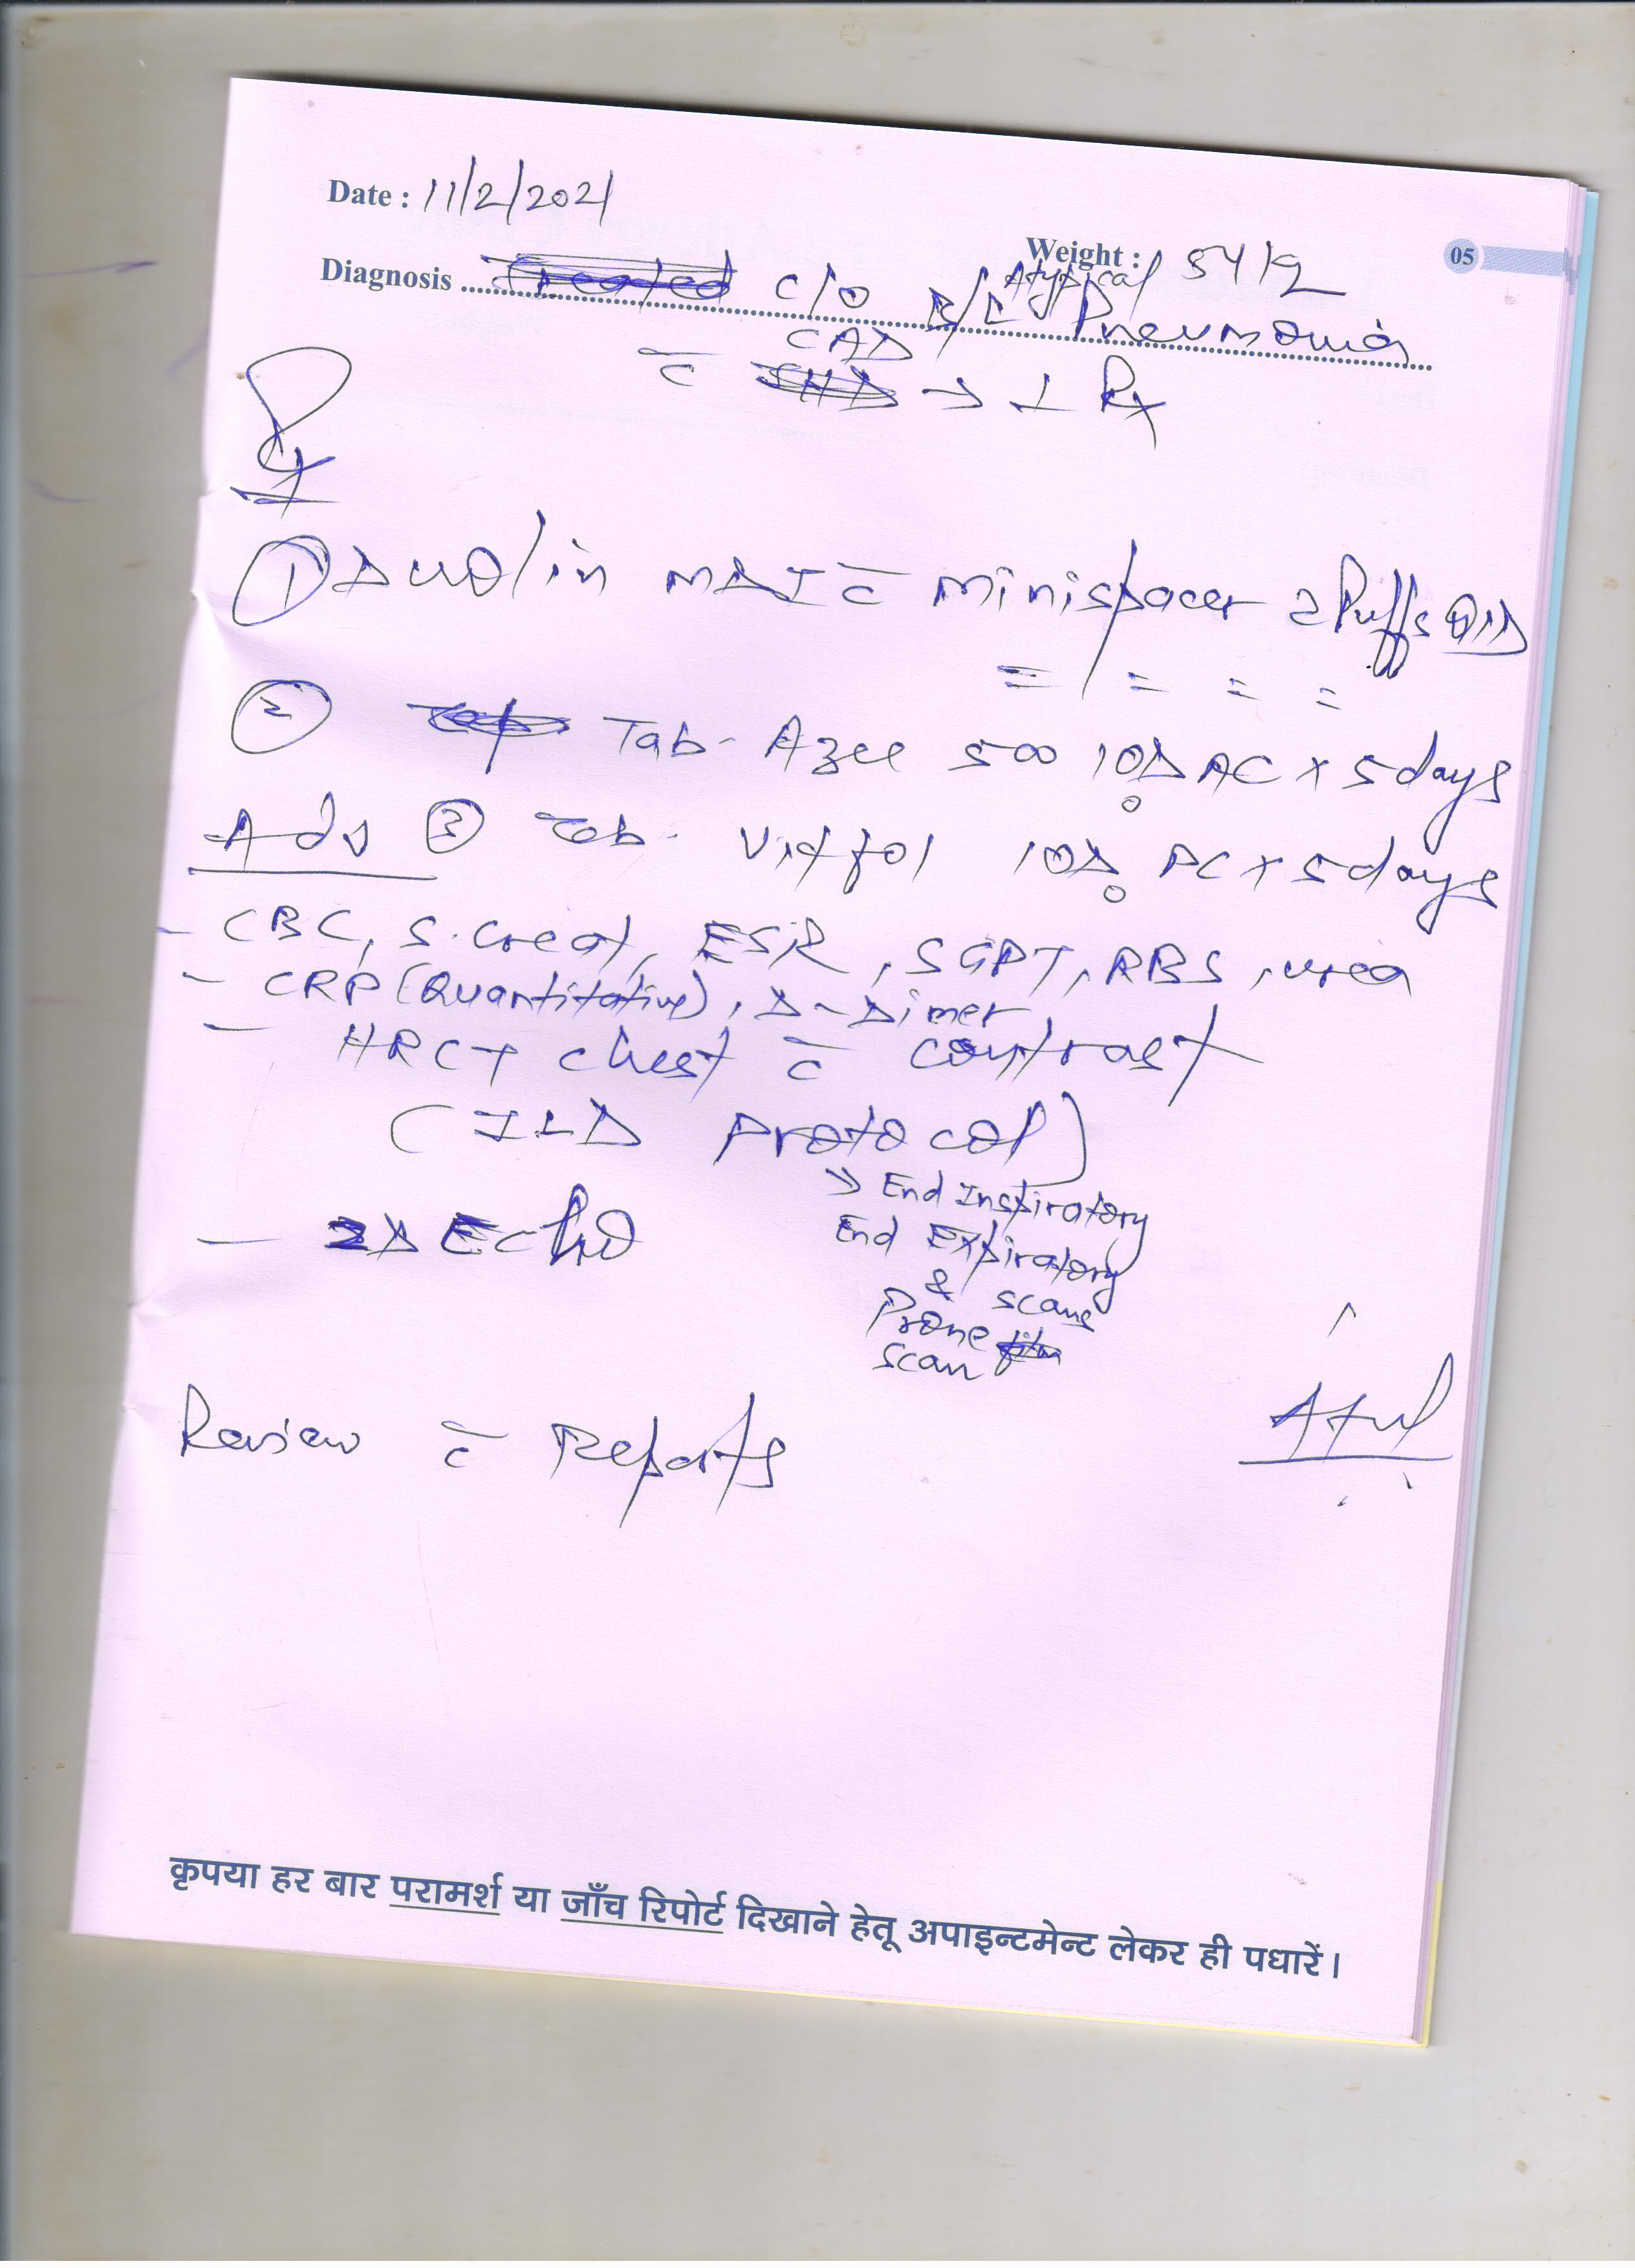 Date : 11/2/2021
Weight : 54 kg
05
Diagnosis c/o B/L Atypical Pneumonia
c̄ CAD → ⊥ Rx
Rx
① Duolin MDI c̄ Minispacer 2 Puffs QID
② Tab- Azee 500 1OD AC x 5 days
Adv ③ Tab. Vitfol 1OD PC x 5 days
- CBC, S. Creat, ESR, SGPT, RBS, urea
- CRP (Quantitative), D-Dimer
- HRCT chest c̄ contrast
(ILD Protocol)
→ End Inspiratory
End Expiratory
& scans
Prone
scan
- 2D Echo
Review c̄ Reports
Atul
कृपया हर बार परामर्श या जाँच रिपोर्ट दिखाने हेतू अपाइन्टमेन्ट लेकर ही पधारें।